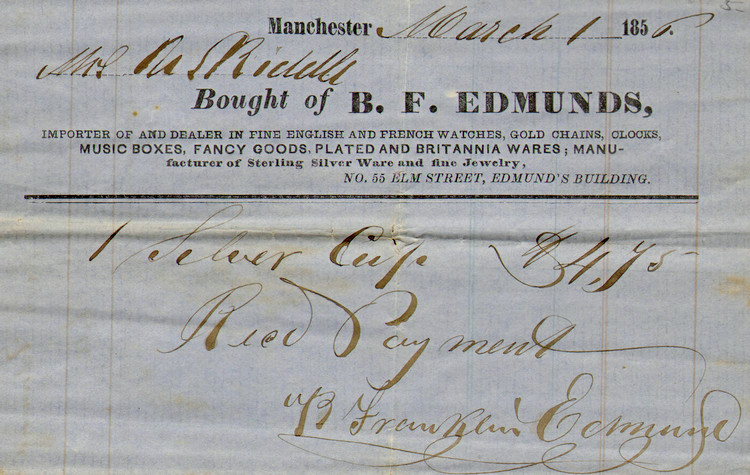 Manchester March 1 1856.
Mrs Riddle
Bought of B. F. EDMUNDS,
IMPORTER OF AND DEALER IN FINE ENGLISH AND FRENCH WATCHES, GOLD CHAINS, CLOCKS,
MUSIC BOXES, FANCY GOODS, PLATED AND BRITANNIA WARES; MANU-
facturer of Sterling Silver Ware and fine Jewelry,
NO. 55 ELM STREET, EDMUND'S BUILDING.
1 Silver Cup $4,75
Recd Payment
B Franklin Edmunds